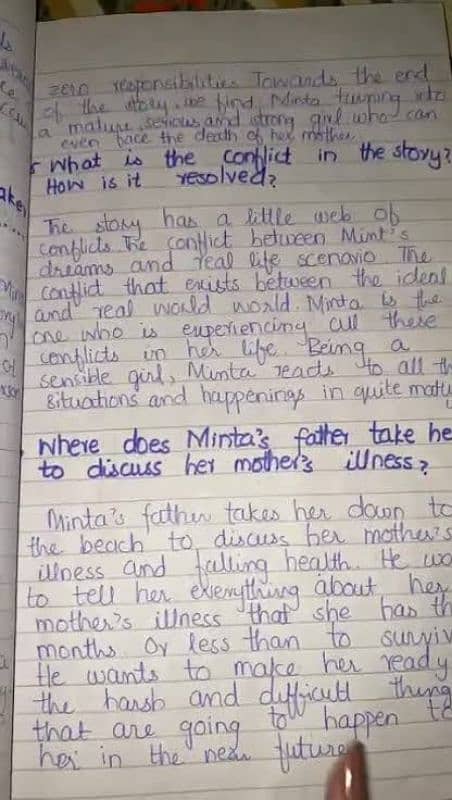 zero responsibilities Towards the end
of the story, we find Minta turning into
a mature, serious and strong girl who can
even face the death of her mother.
What is the conflict in the story?
How is it resolved?
The story has a little web of
conflicts. The conflict between Mint's
dreams and real life scenario The
conflict that exists between the ideal
and real world world. Minta is the
one who is experiencing all these
conflicts in her life. Being a
sensible girl, Minta reacts to all th
situations and happenings in quite matu
Where does Minta's father take he
to discuss her mother's illness?
Minta's father takes her down to
the beach to discuss her mother's
illness and falling health. He wa
to tell her everything about her
mother's illness that she has th
months Or less than to surviv
He wants to make her ready
the harsh and difficult thing
that are going to happen to
her in the near future